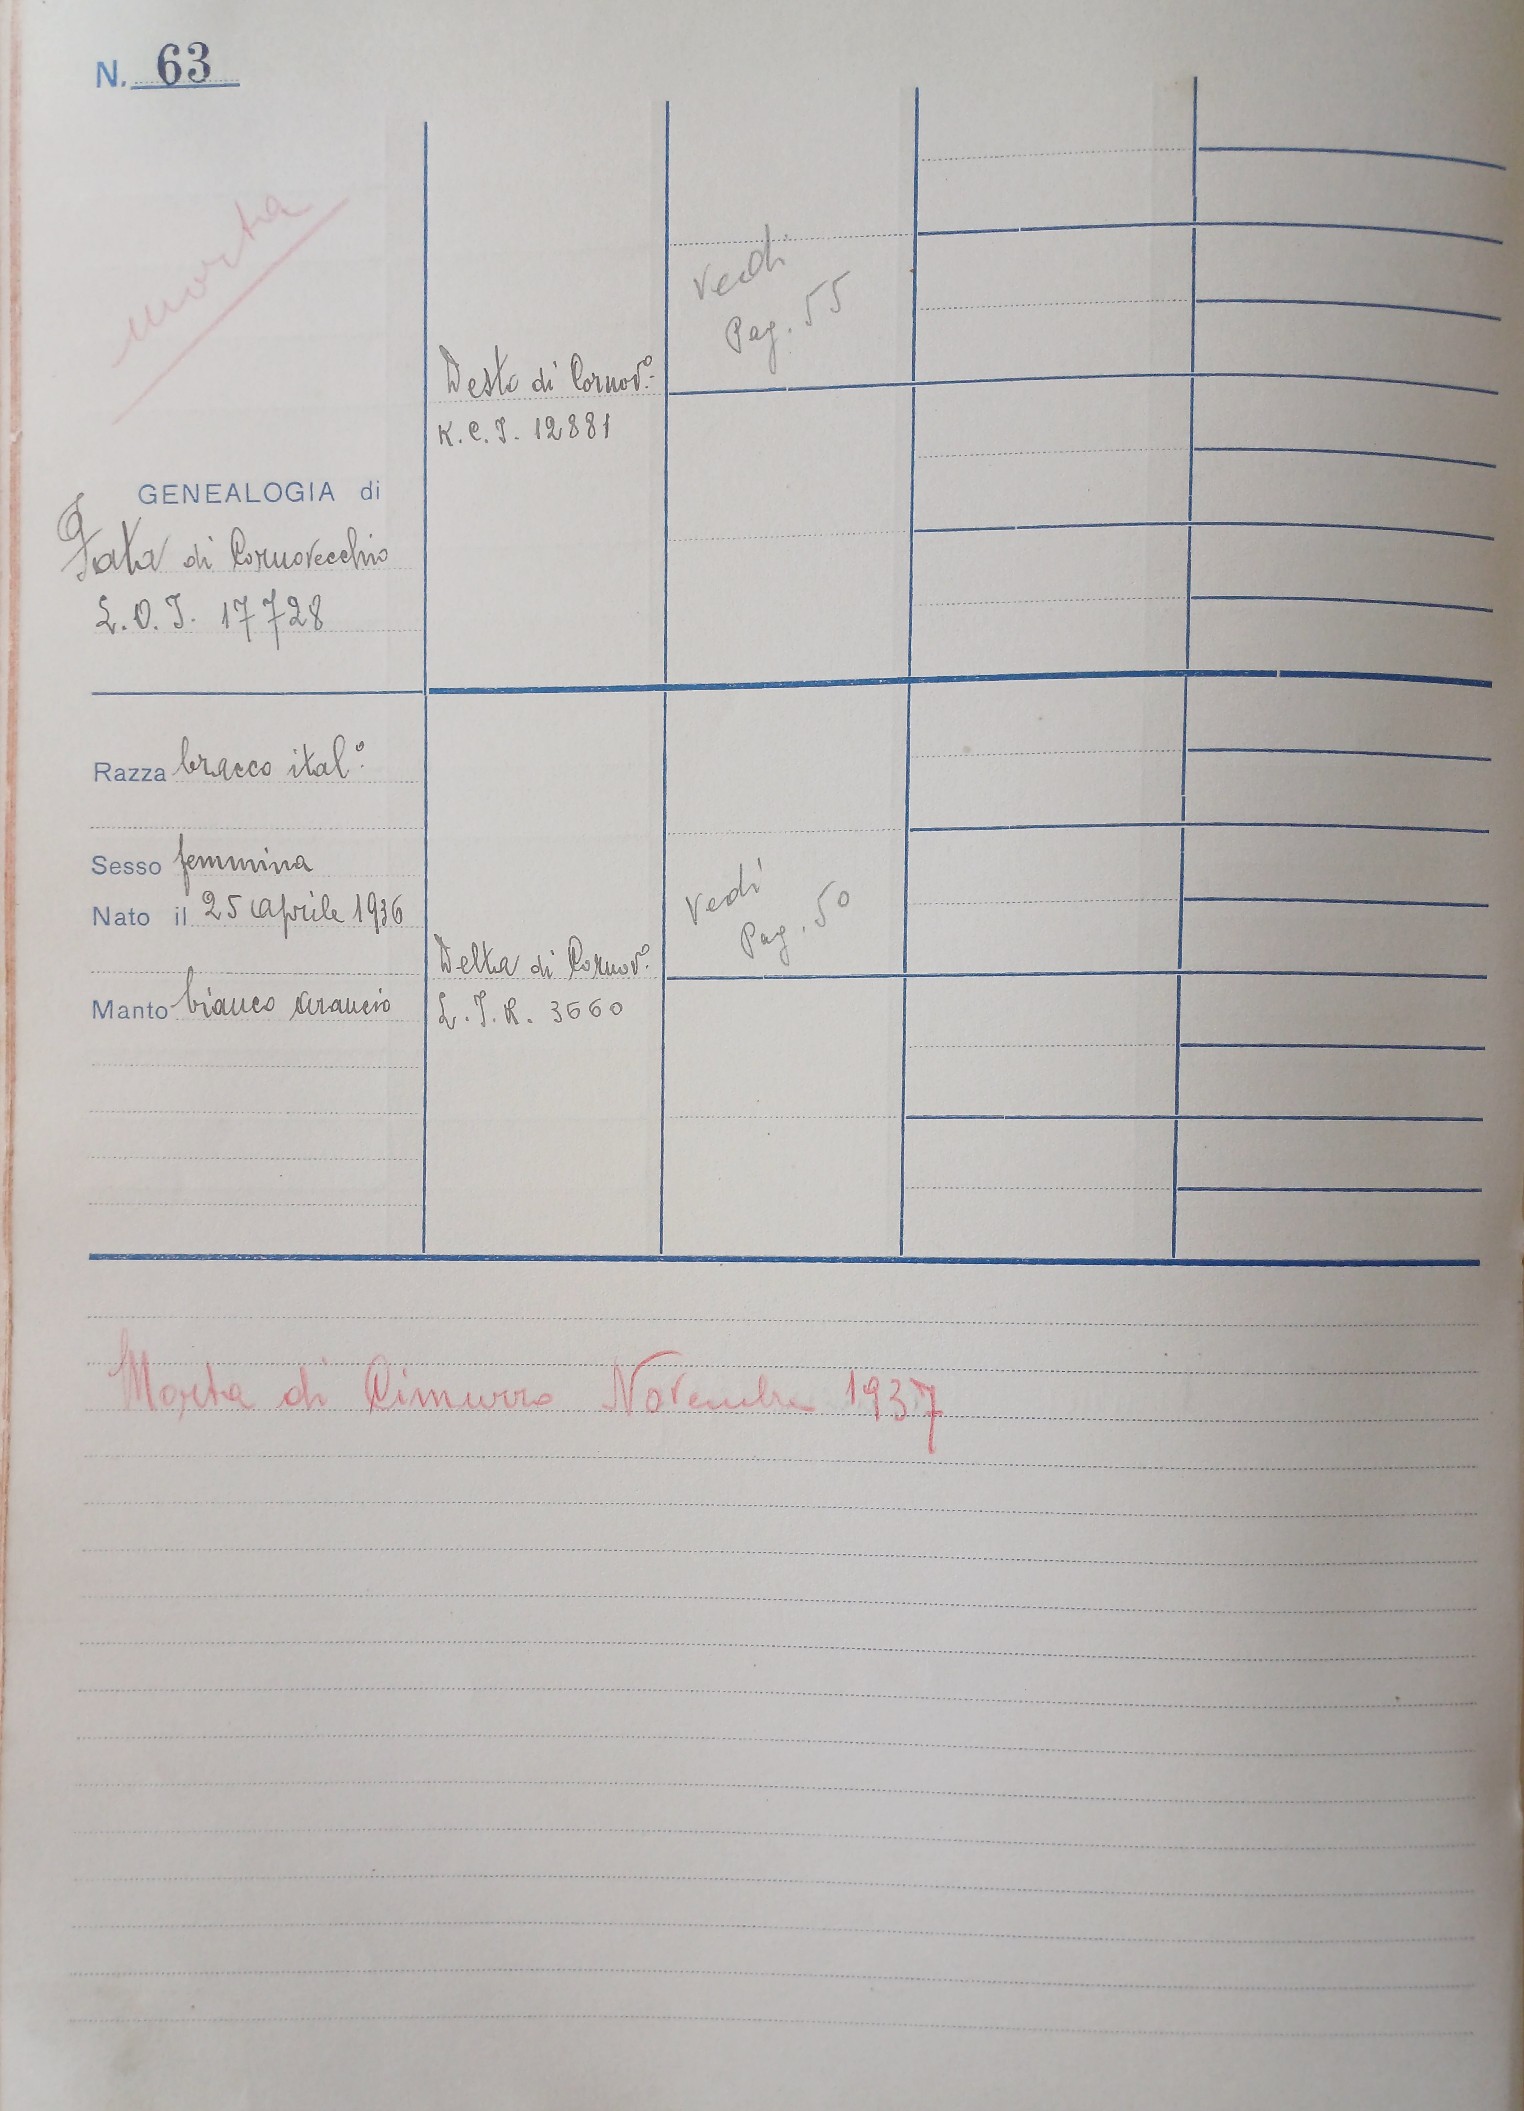 N. 63
morta
Vedi
Pag. 55
Desto di Cornov.º
K.C.I. 12881
GENEALOGIA di
Fata di Cornovecchio
L.O.I. 17728
Razza bracco ital.º
Sesso femmina
Nato il 25 Aprile 1936
Manto bianco arancio
Delta di Cornov.º
L.I.R. 3660
Vedi
Pag. 50
Morta di Cimurro Novembre 1937